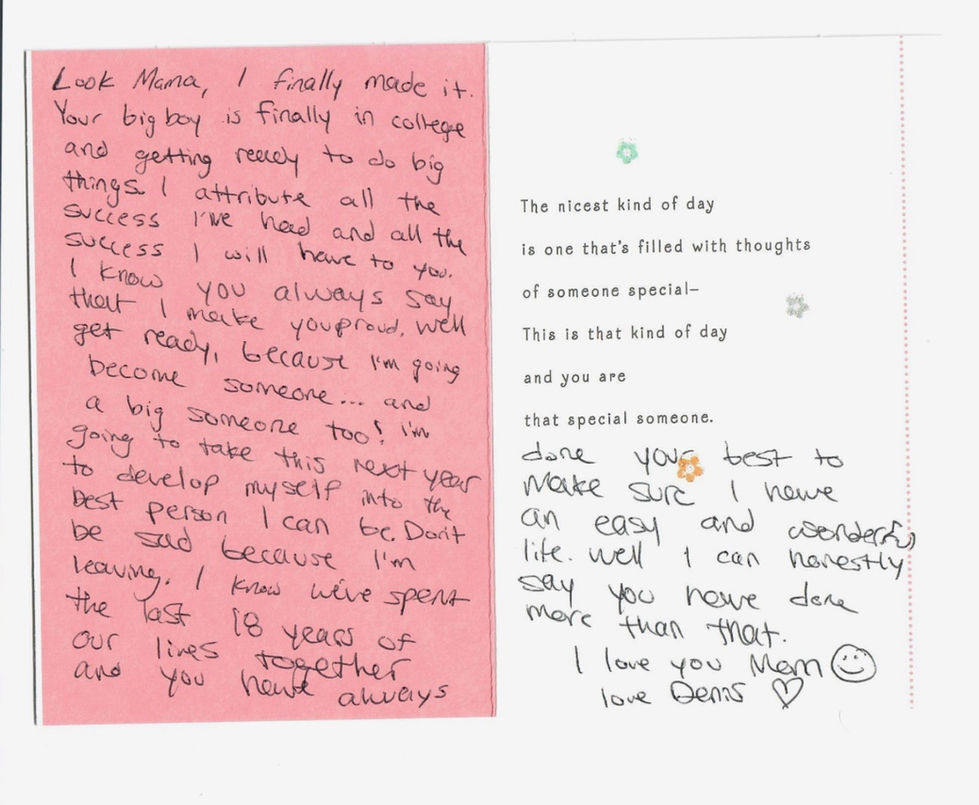 Look Mama, I finally made it.
Your big boy is finally in college
and getting ready to do big
things. I attribute all the
success I've had and all the
success I will have to you.
I know you always say
that I make you proud. Well
get ready, because I'm going
become someone... and
a big someone too! I'm
going to take this next year
to develop myself into the
best person I can be. Don't
be sad because I'm
leaving. I know we've spent
the last 18 years of
our lives together
and you have always
The nicest kind of day
is one that's filled with thoughts
of someone special–
This is that kind of day
and you are
that special someone.
done your best to
make sure I have
an easy and wonderful
life. Well I can honestly
say you have done
more than that.
I love you Mom
love Denis